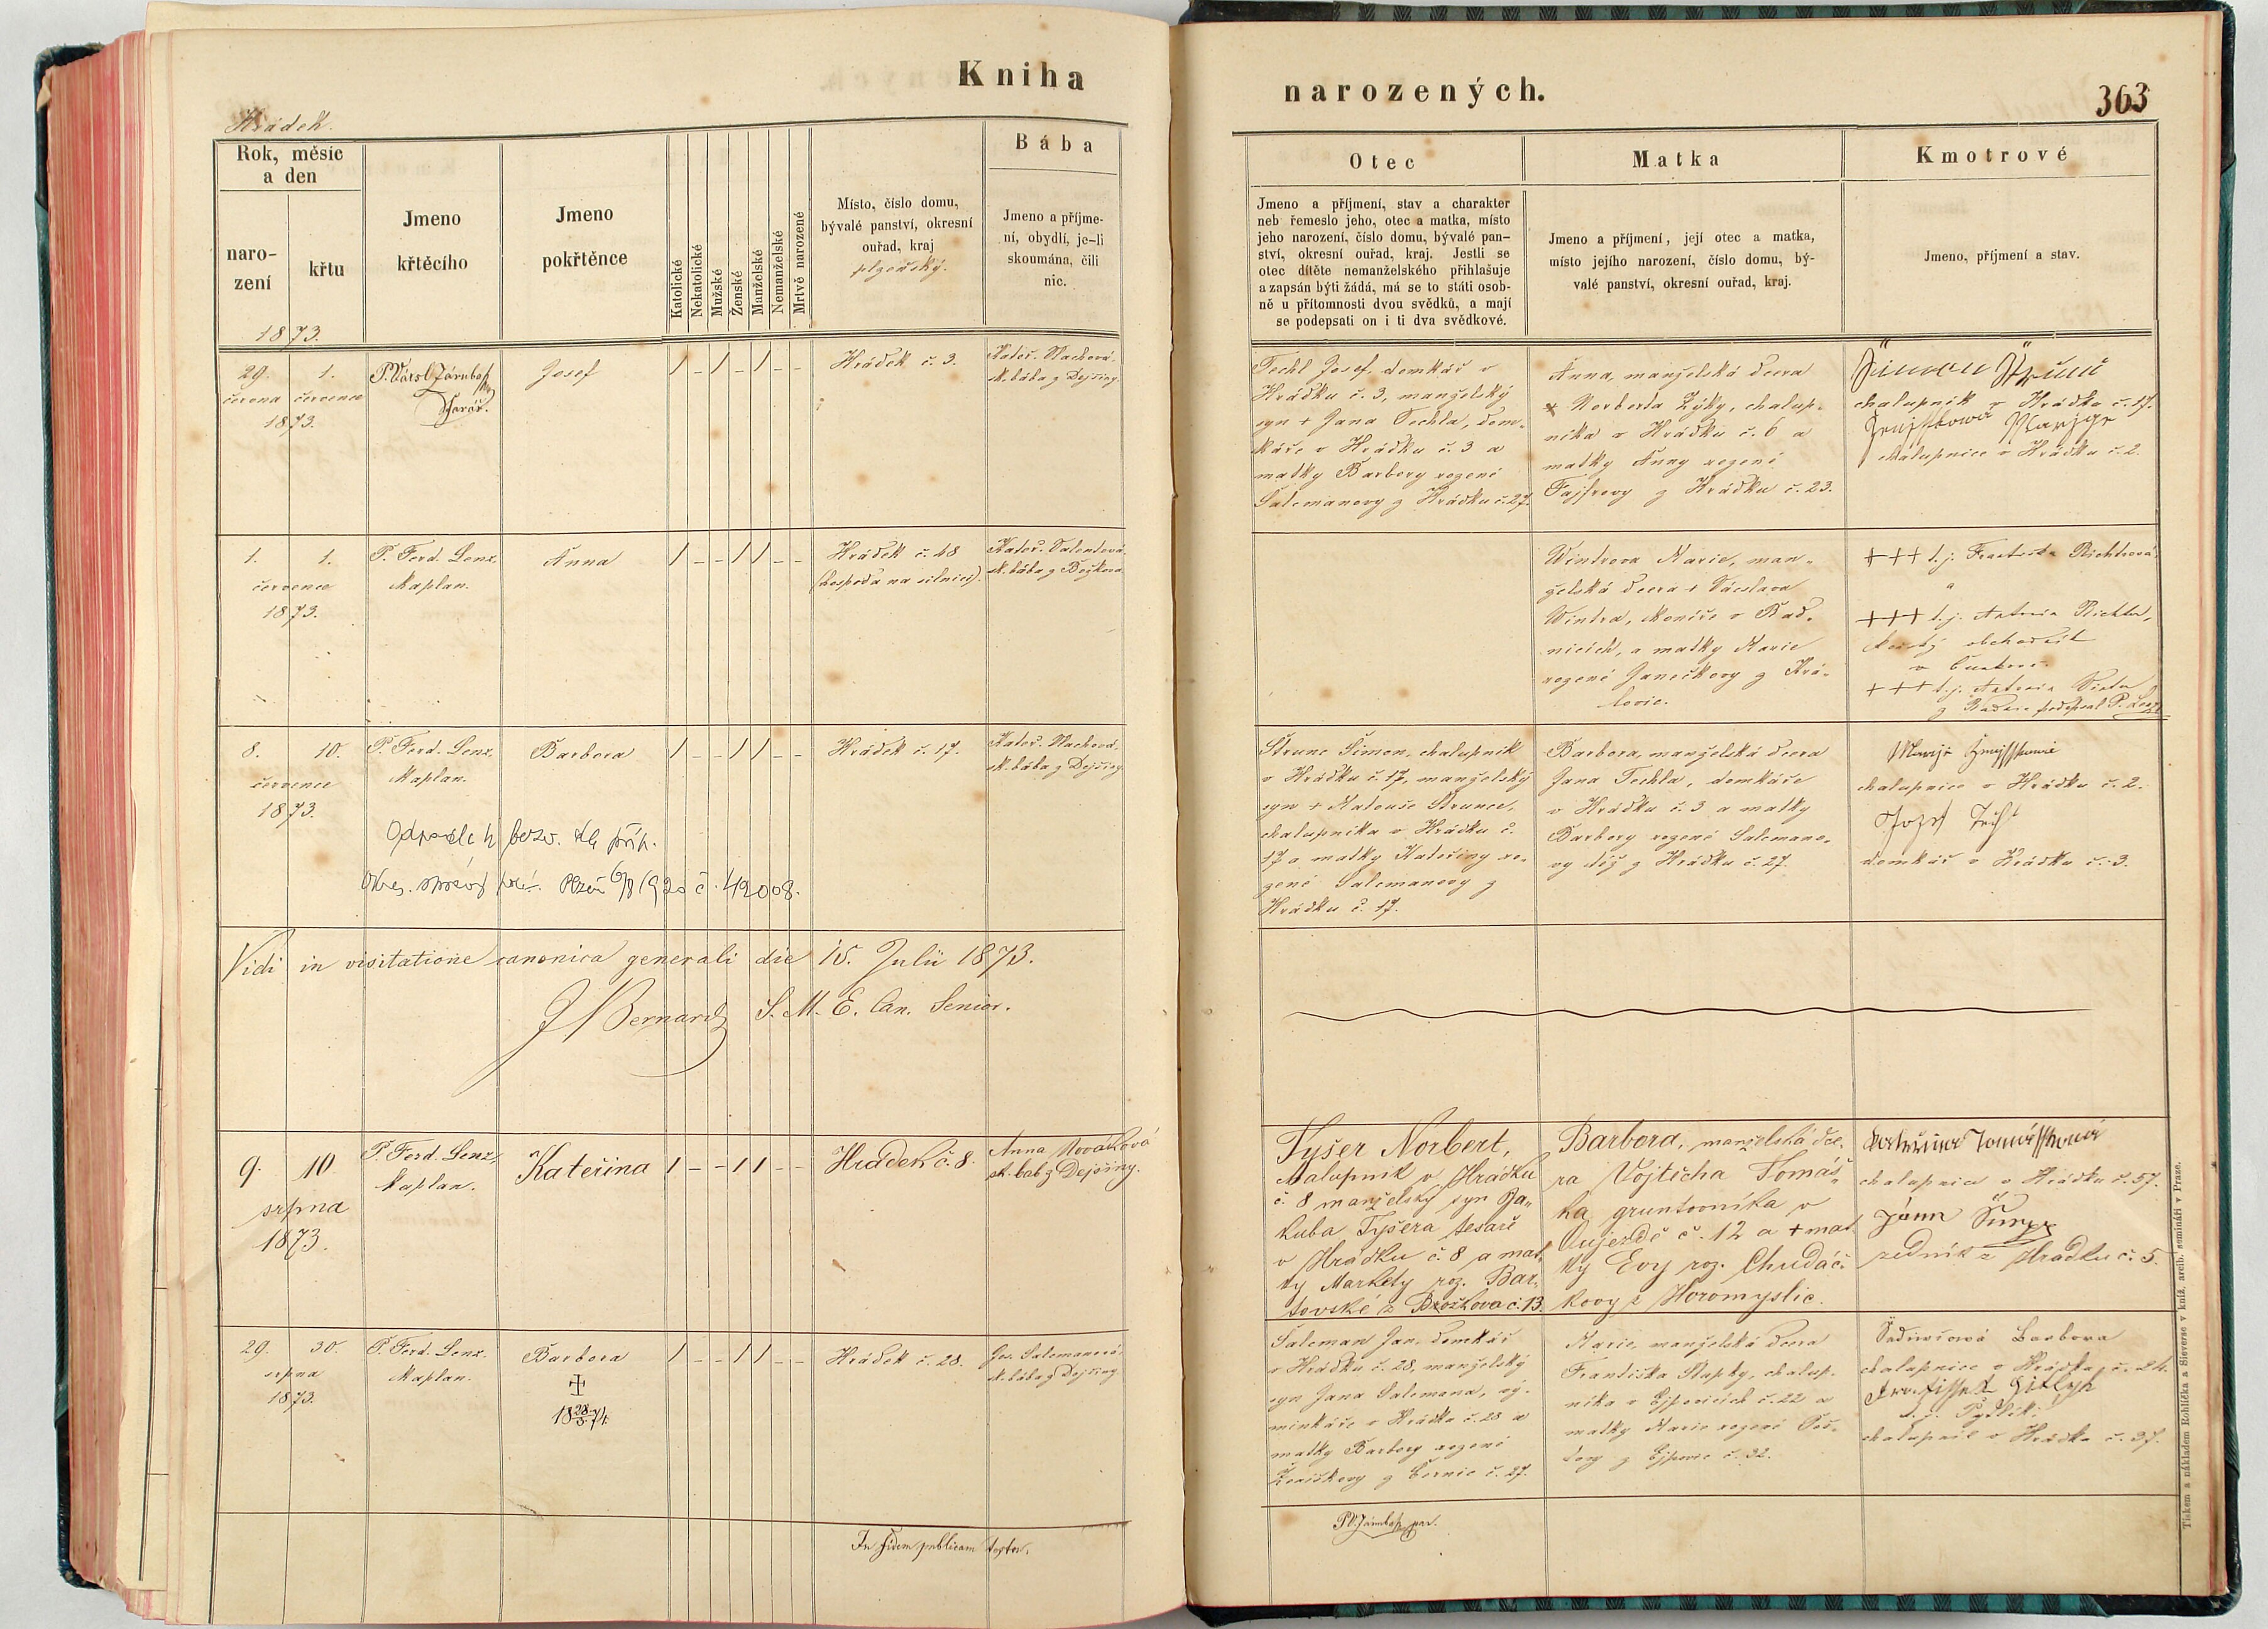 Kniha
Hrádek.
Rok, měsíc
a den
naro-
zení
křtu
1873.
Jmeno
křtěcího
Jmeno
pokřtěnce
Katolické
Nekatolické
Mužské
Ženské
Manželské
Nemanželské
Mrtvě narozené
Místo, číslo domu,
bývalé panství, okresní
ouřad, kraj
plzeňský.
Bába
Jmeno a příjme-
ní, obydlí, je-li
skoumána, čili
nic.
29. 1.
června července
1873.
Farář.
Josef
/ - / - / - -
Hrádek č. 3.
Kateř. Machová
zk. bába z Dejšiny.
1. 1.
července
1873.
P. Ferd. Lenz,
kaplan.
Anna
/ - - / / - -
Hrádek č. 48
(hospoda na silnici).
Kateř. Valentová
zk. bába z Božkova
8. 10.
července
1873.
P. Ferd. Lenz,
kaplan.
Barbora
/ - - / / - -
Hrádek č. 17.
Kateř. Machová
zk. bába z Dejšiny
Odpadle k bezv. dle příp.
Okres. správy pol. Plzeň 6/8 1920 č. 42008.
Vidi in visitatione canonica generali die 15. Julii 1873.
J Bernard S. M. E. Can. Senior.
9. 10
srpna
1873.
P. Ferd. Lenz,
kaplan.
Kateřina
/ - - / / - -
Hrádek č. 8.
Anna Nováková
zk. bab z Dejšiny.
29. 30.
srpna
1873.
P. Ferd. Lenz.
kaplan.
Barbora
18 28/5 74.
/ - - / / - -
Hrádek č. 28.
Salemanová
zk. bába z Dejšiny
In fidem publicam testor.
narozených.
363
Otec
Jmeno a příjmení, stav a charakter
neb řemeslo jeho, otec a matka, místo
jeho narození, číslo domu, bývalé pan-
ství, okresní ouřad, kraj. Jestli se
otec dítěte nemanželského přihlašuje
a zapsán býti žádá, má se to státi osob-
ně u přítomnosti dvou svědků, a mají
se podepsati on i ti dva svědkové.
Matka
Jmeno a příjmení, její otec a matka,
místo jejího narození, číslo domu, bý-
valé panství, okresní ouřad, kraj.
Kmotrové
Jmeno, příjmení a stav.
Techl Josef domkář v
Hrádku č. 3, manželský
syn + Jana Techla, dom-
káře v Hrádku č. 3 a
matky Barbory rozené
Salemanovy z Hrádku č. 27.
Anna, manželská dcera
+ Norberta Zýky, chalup-
níka v Hrádku č. 6 a
matky Anny rozené
Fajfrovy z Hrádku č. 23.
chalupník v Hrádku č. 17.
chalupnice v Hrádku č. 2.
Wintrova Marie, man-
želská dcera + Václava
Wintra, koníře v Rad-
nicích, a matky Marie
rozené Janečkovy z Krá-
lovic.
+++ t. j. Františka Richtrová
a
+++ t. j. Antonín Richter,
+++ t. j. Antonín
podepsal P. Lenz
Strunc Šimon, chalupník
v Hrádku č. 17, manželský
syn + Matouše Strunce,
chalupníka v Hrádku č.
17 a matky Kateřiny ro-
zené Salemanovy z
Hrádku č. 17.
Barbora, manželská dcera
Jana Techla, domkáře
v Hrádku č. 3 a matky
Barbory rozené Salemano-
vy též z Hrádku č. 27.
chalupnice v Hrádku č. 2.
Jozef Techl
domkář v Hrádku č. 3.
Tyšer Norbert,
chalupník v Hrádku
č. 8 manželský syn Ja-
kuba Tyšera tesaře
v Hrádku č. 8 a mat-
ky Markéty roz. Bar-
tovské z Božkova č. 13.
Barbora, manželská dce-
ra Vojtěcha Tomáš-
ka gruntovníka v
Oujezdě č. 12 a + mat-
ky Evy roz. Chudáč-
kovy z Horomyslic.
chalupnice v Hrádku č. 57.
zedník z Hrádku č. 5.
Saleman Jan, domkář
v Hrádku č. 28, manželský
syn Jana Salemana, vý-
minkáře v Hrádku č. 28 a
matky Barbory rozené
z Černic č. 27.
Marie, manželská dcera
Františka Slapky, chalup-
níka v Ejpovicích č. 22 a
matky Marie rozené
z Ejpovic č. 32.
Barbora
chalupnice v Hrádku č. 24.
chalupník v Hrádku č. 37.
Tiskem a nákladem Rohlíčka a Sieverse v kníž. arcib. semináři v Praze.